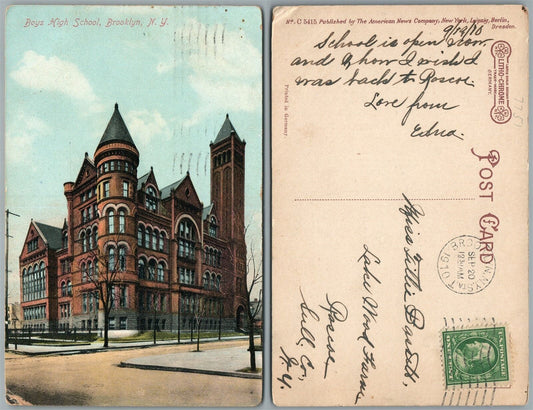 Boys High School, Brooklyn, N.Y.
No. C 5415 Published by The American News Company, New York, Leipzig, Berlin,
Dresden.
9/19/10
School is open now
and O how I wish I
was back to Roscoe.
Love from
Edna.
Printed in Germany.
LITHO-CHROME
GERMANY.
7751
POST CARD
BROOKLYN, N.Y.
SEP 20
12 30 AM
1910
Miss Tillie
Lake Wood Farm
Roscoe
Sull. Co,
N.Y.